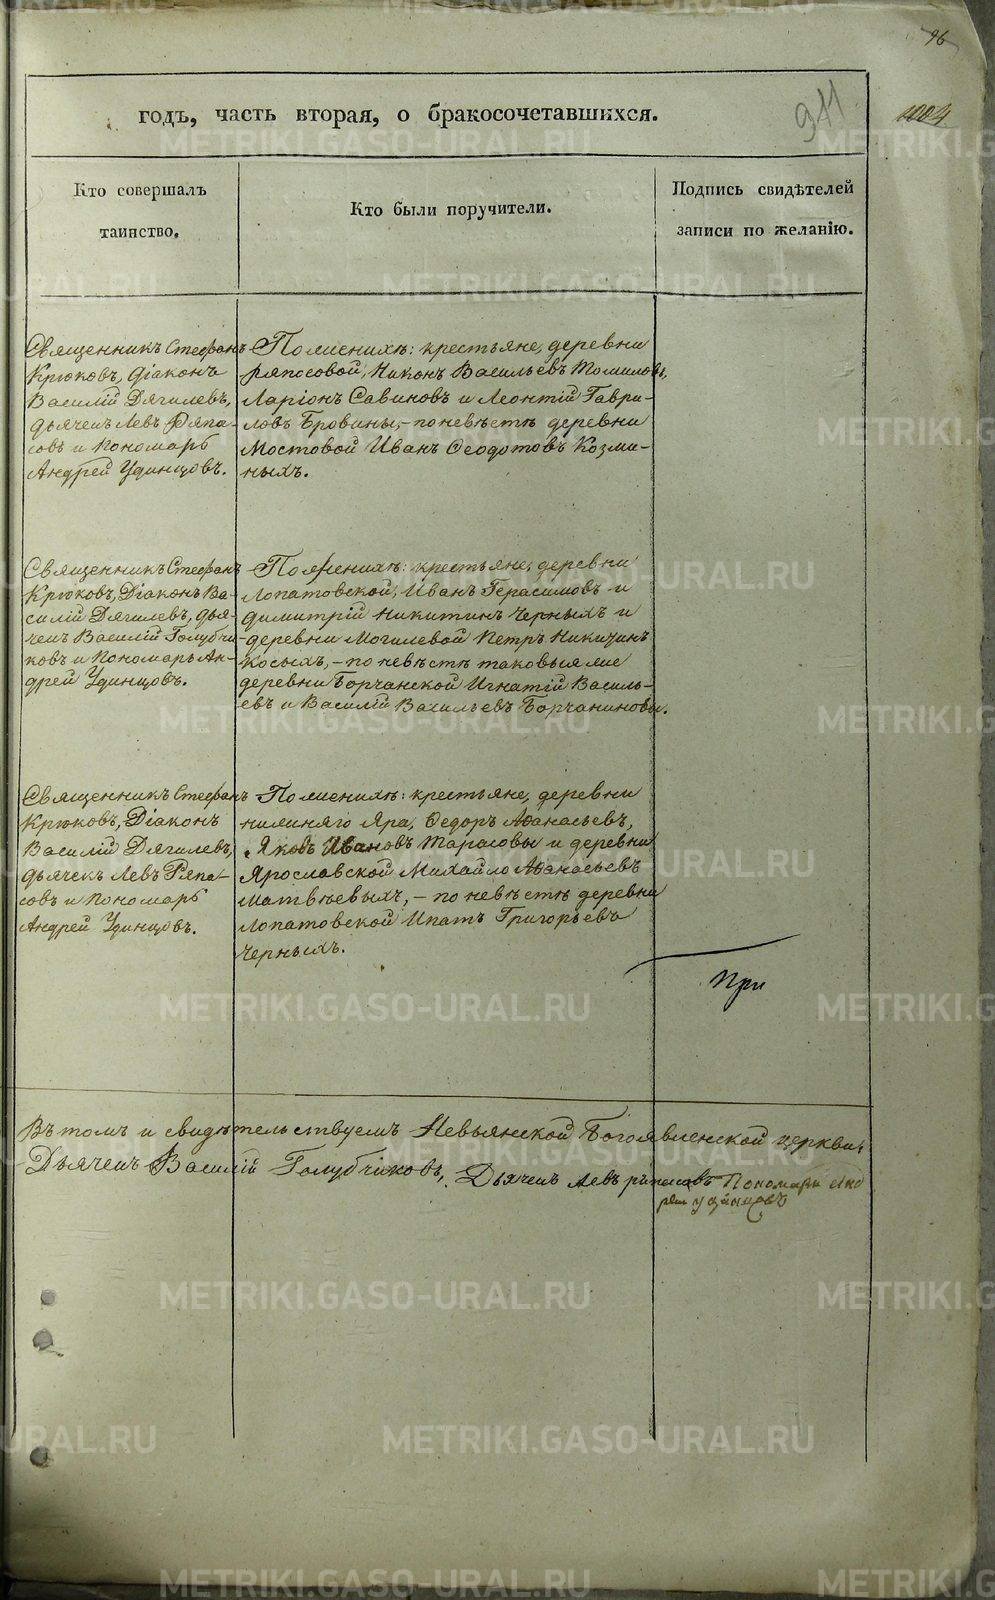 96
годъ, часть вторая, о бракосочетавшихся.
911
1004
Кто совершалъ
таинство.
Кто были поручители.
Подпись свидѣтелей
записи по желанію.
Священникъ Стефанъ
Крюковъ, діаконъ
Василій Дягилевъ,
дьячекъ Левъ Ряпа-
совъ и Пономарь
Андрей Удинцовъ.
По женихѣ: крестьяне, деревни
Ряпосовой, Никонъ Васильевъ Томиловъ,
Ларіонъ Савиновъ и Леонтій Гаври-
ловъ Бровины, - по невѣстѣ деревни
Мостовой Иванъ Ѳеодотовъ Козми-
ныхъ.
Священникъ Стефанъ
Крюковъ, Діаконъ Ва-
силій Дягилевъ, дья-
чекъ Василій Голубчи-
ковъ и Пономарь Ан-
дрей Удинцовъ.
По женихѣ: крестьяне, деревни
Лопатовской, Иванъ Герасимовъ и
Димитрій Никитинъ Черныхъ и
деревни Могилевой Петръ Никитинъ
Косыхъ, - по невѣстѣ таковыя же
деревни Борчанской Игнатій Василь-
евъ и Василій Васильевъ Борчаниновы.
Священникъ Стефанъ
Крюковъ, Діаконъ
Василій Дягилевъ,
дьячекъ Левъ Ряпа-
совъ и Пономарь
Андрей Удинцовъ.
По женихѣ: крестьяне, деревни
нижняго Яра, Ѳедоръ Аѳанасьевъ,
Яковъ Ивановъ Тарасовы и деревни
Ярославской Михайло Аѳанасьевъ
Матвѣевыхъ, - по невѣстѣ деревни
Лопатовской Ипатъ Григорьевъ
Черныхъ.
При
Въ томъ и свидѣтельствуемъ Невьянской Богоявленской церкви:
Дьячекъ Василій Голубчиковъ, Дьячекъ Левъ ряпасовъ Пономарь Анд
рей удинцовъ
METRIKI.GASO-URAL.RU